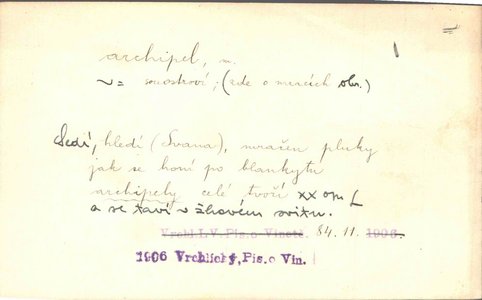 archipel, m.
souostroví; (zde o mracích obr.)
Sedí, hledí (Svana), mračen pluky
jak se honí po blankytu
archipely celé tvoří xx
a se taví v žhavém svitu.
Vrchl.J.V.Pís.o Vinetě. 84. 11. 1906.
1906 Vrchlický, Pís.o Vin.